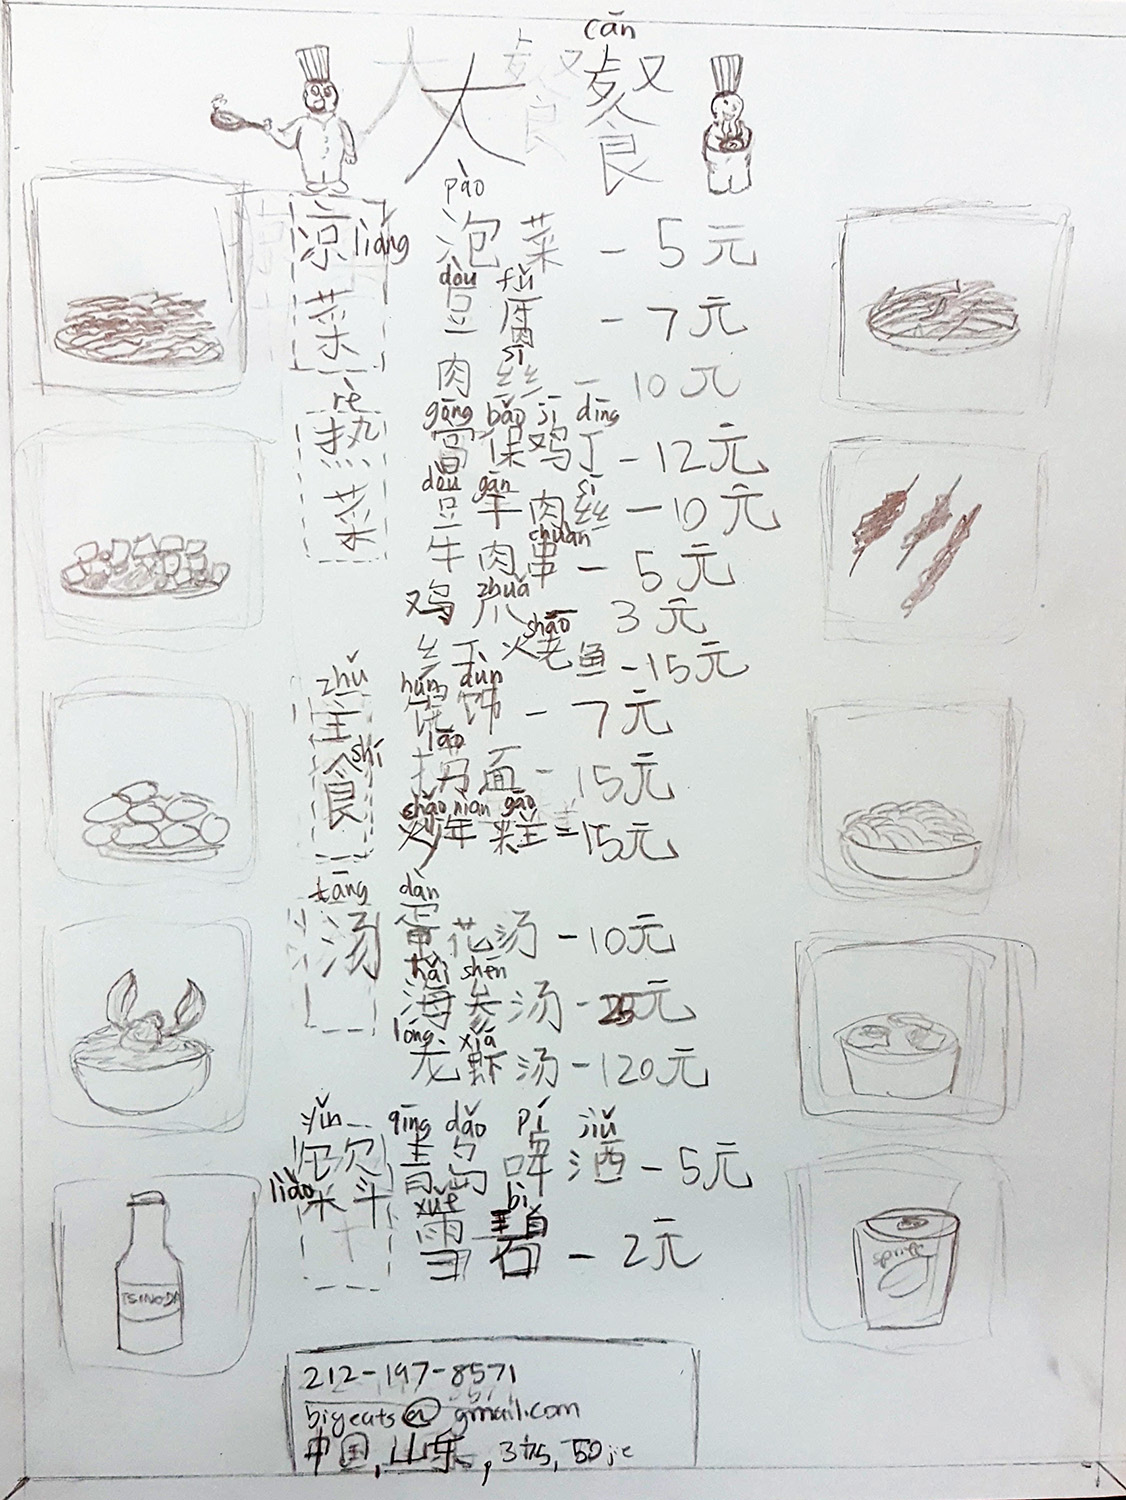 cān
大餐
pào
凉 liáng 泡菜 - 5元
dòu fǔ
菜 豆腐 - 7元
sī
肉丝 - 10元
rè gōng bǎo jī dīng
热 宫保鸡丁 - 12元
dòu gān sī
菜 豆干肉丝 - 10元
chuàn
牛肉串 - 5元
zhuǎ
鸡爪 3元
shāo
红烧鱼 - 15元
zhǔ hún dùn
主 馄饨 - 7元
shí lāo
食 捞面 - 15元
chǎo nián gāo
炒年糕 - 15元
tāng dàn
汤 蛋花汤 - 10元
hǎi shēn
海参汤 - 25元
lóng xiā
龙虾汤 - 120元
yǐn qīng dǎo pí jiǔ
饮 青岛啤酒 - 5元
liào xuě bì
料 雪碧 - 2元
TSINGDA
sprite
212-197-8571
bigeats@gmail.com
中国, 山东,